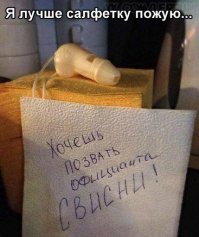 Я лучше салфетку пожую...
Хочешь
позвать
официанта
СВИСНИ!